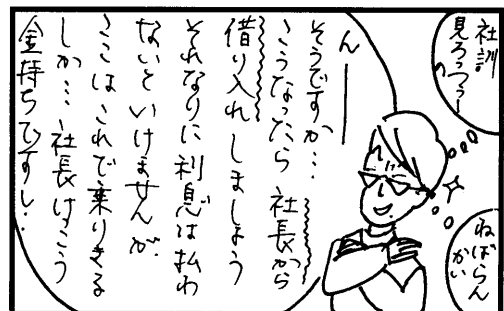 社訓
見ろっつぅー
ねばらん
かい
んー
そうですか…
こうなったら 社長から
借り入れしましょう
それなりに利息は払わ
ないといけませんが
ここはこれで乗りきる
しか… 社長けっこう
金持ちですし・